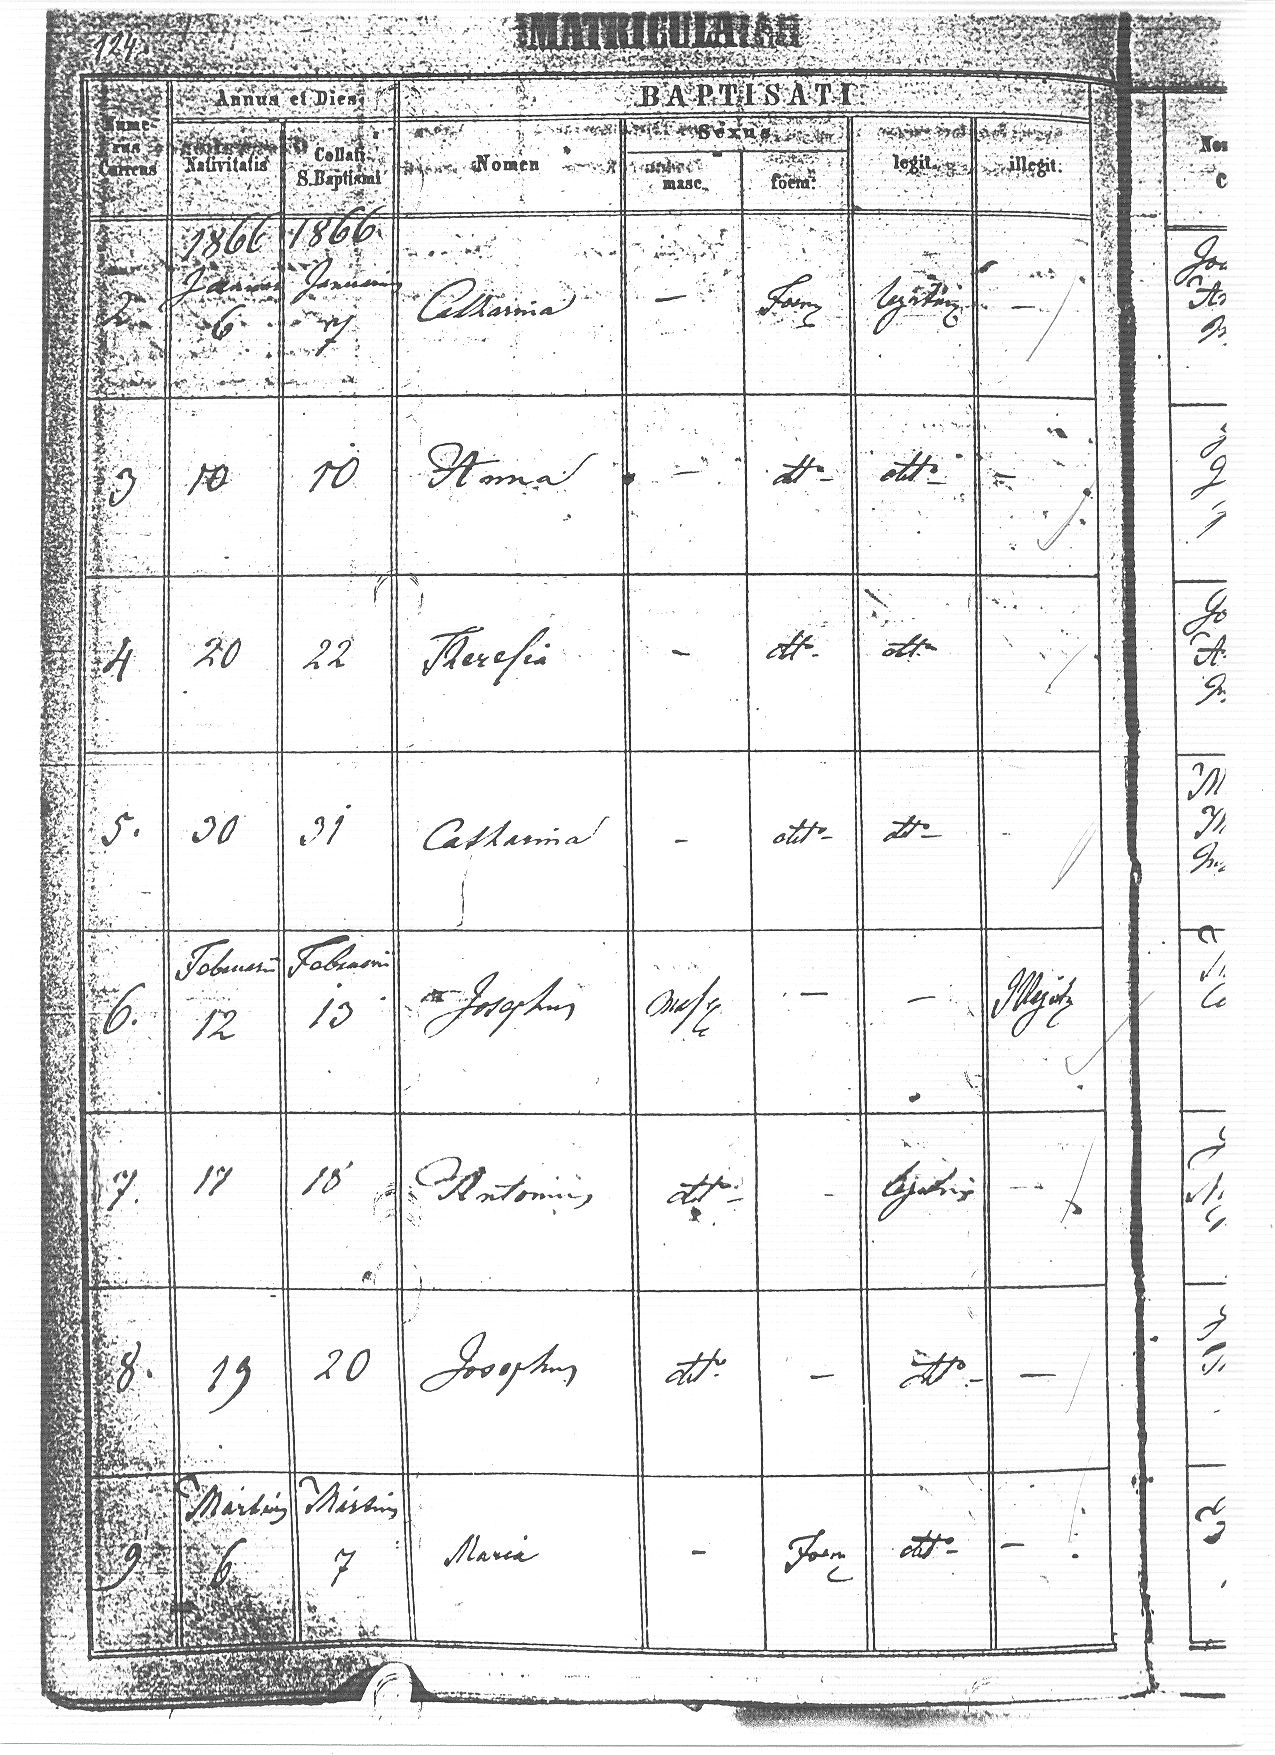 124.
MATRICULA
Annus et Dies
BAPTISATI
Nume-
rus
Currens
Nativitatis
Collati
S. Baptismi
Nomen
Sexus
masc.
foem.
legit.
illegit.
1866 1866.
Januarius Januarius
2 6 7 Catharina — Foem —
3 10 10 Anna — dtto dtto —
4 20 22 Theresia — dtto dtto
5. 30 31 Catharina — dtto dtto -
Februarii Februarii
6. 12 13 Josephus Masc — — Illegit
7. 17 18 Antonius dtto - —
8. 19 20 Josephus dtto — dtto —
Martius Martius
9 6 7 Maria — Foem dtto —